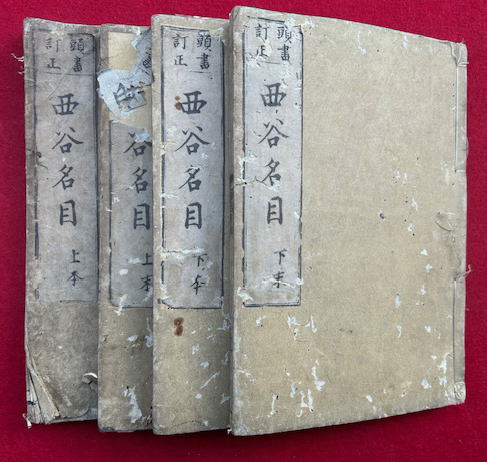 頭書
訂正
西谷名目
上本
谷名目
上末
頭書
訂正
西谷名目
下本
頭書
訂正
西谷名目
下末